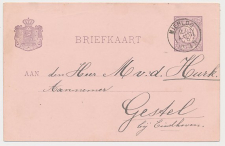 BRIEFKAART
AAN den Heer M. v. d. Hurk.
Aannemer
Gestel
bij Eindhoven